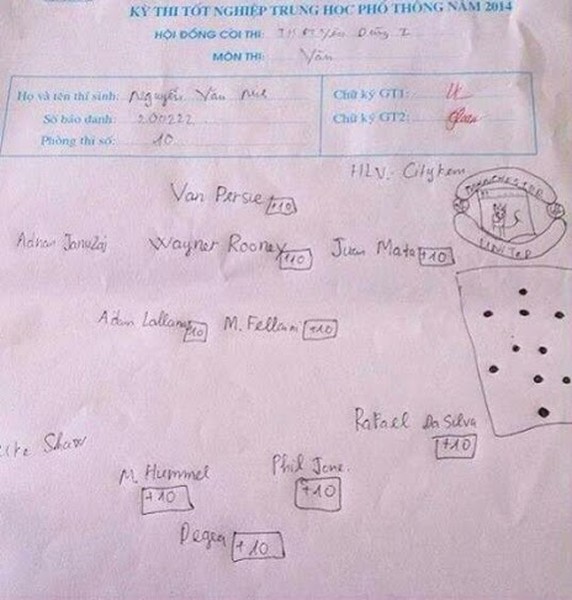 KỲ THI TỐT NGHIỆP TRUNG HỌC PHỔ THÔNG NĂM 2014
HỘI ĐỒNG COI THI: THPT Yên Dũng I
MÔN THI: Văn
Họ và tên thí sinh: Nguyễn Văn Chữ ký GT1:
Số báo danh: 200222 Chữ ký GT2:
Phòng thi số: 10
HLV: Citykem
MANCHESTER
UNITED
Van Persie +10
Adnan Januzaj Wayner Rooney +10 Juan Mata +10
Adam Lallana +10 M. Fellani +10
Rafael Da Silva
+10
Luke Shaw
M. Hummel Phil Jone.
+10 +10
Degea +10